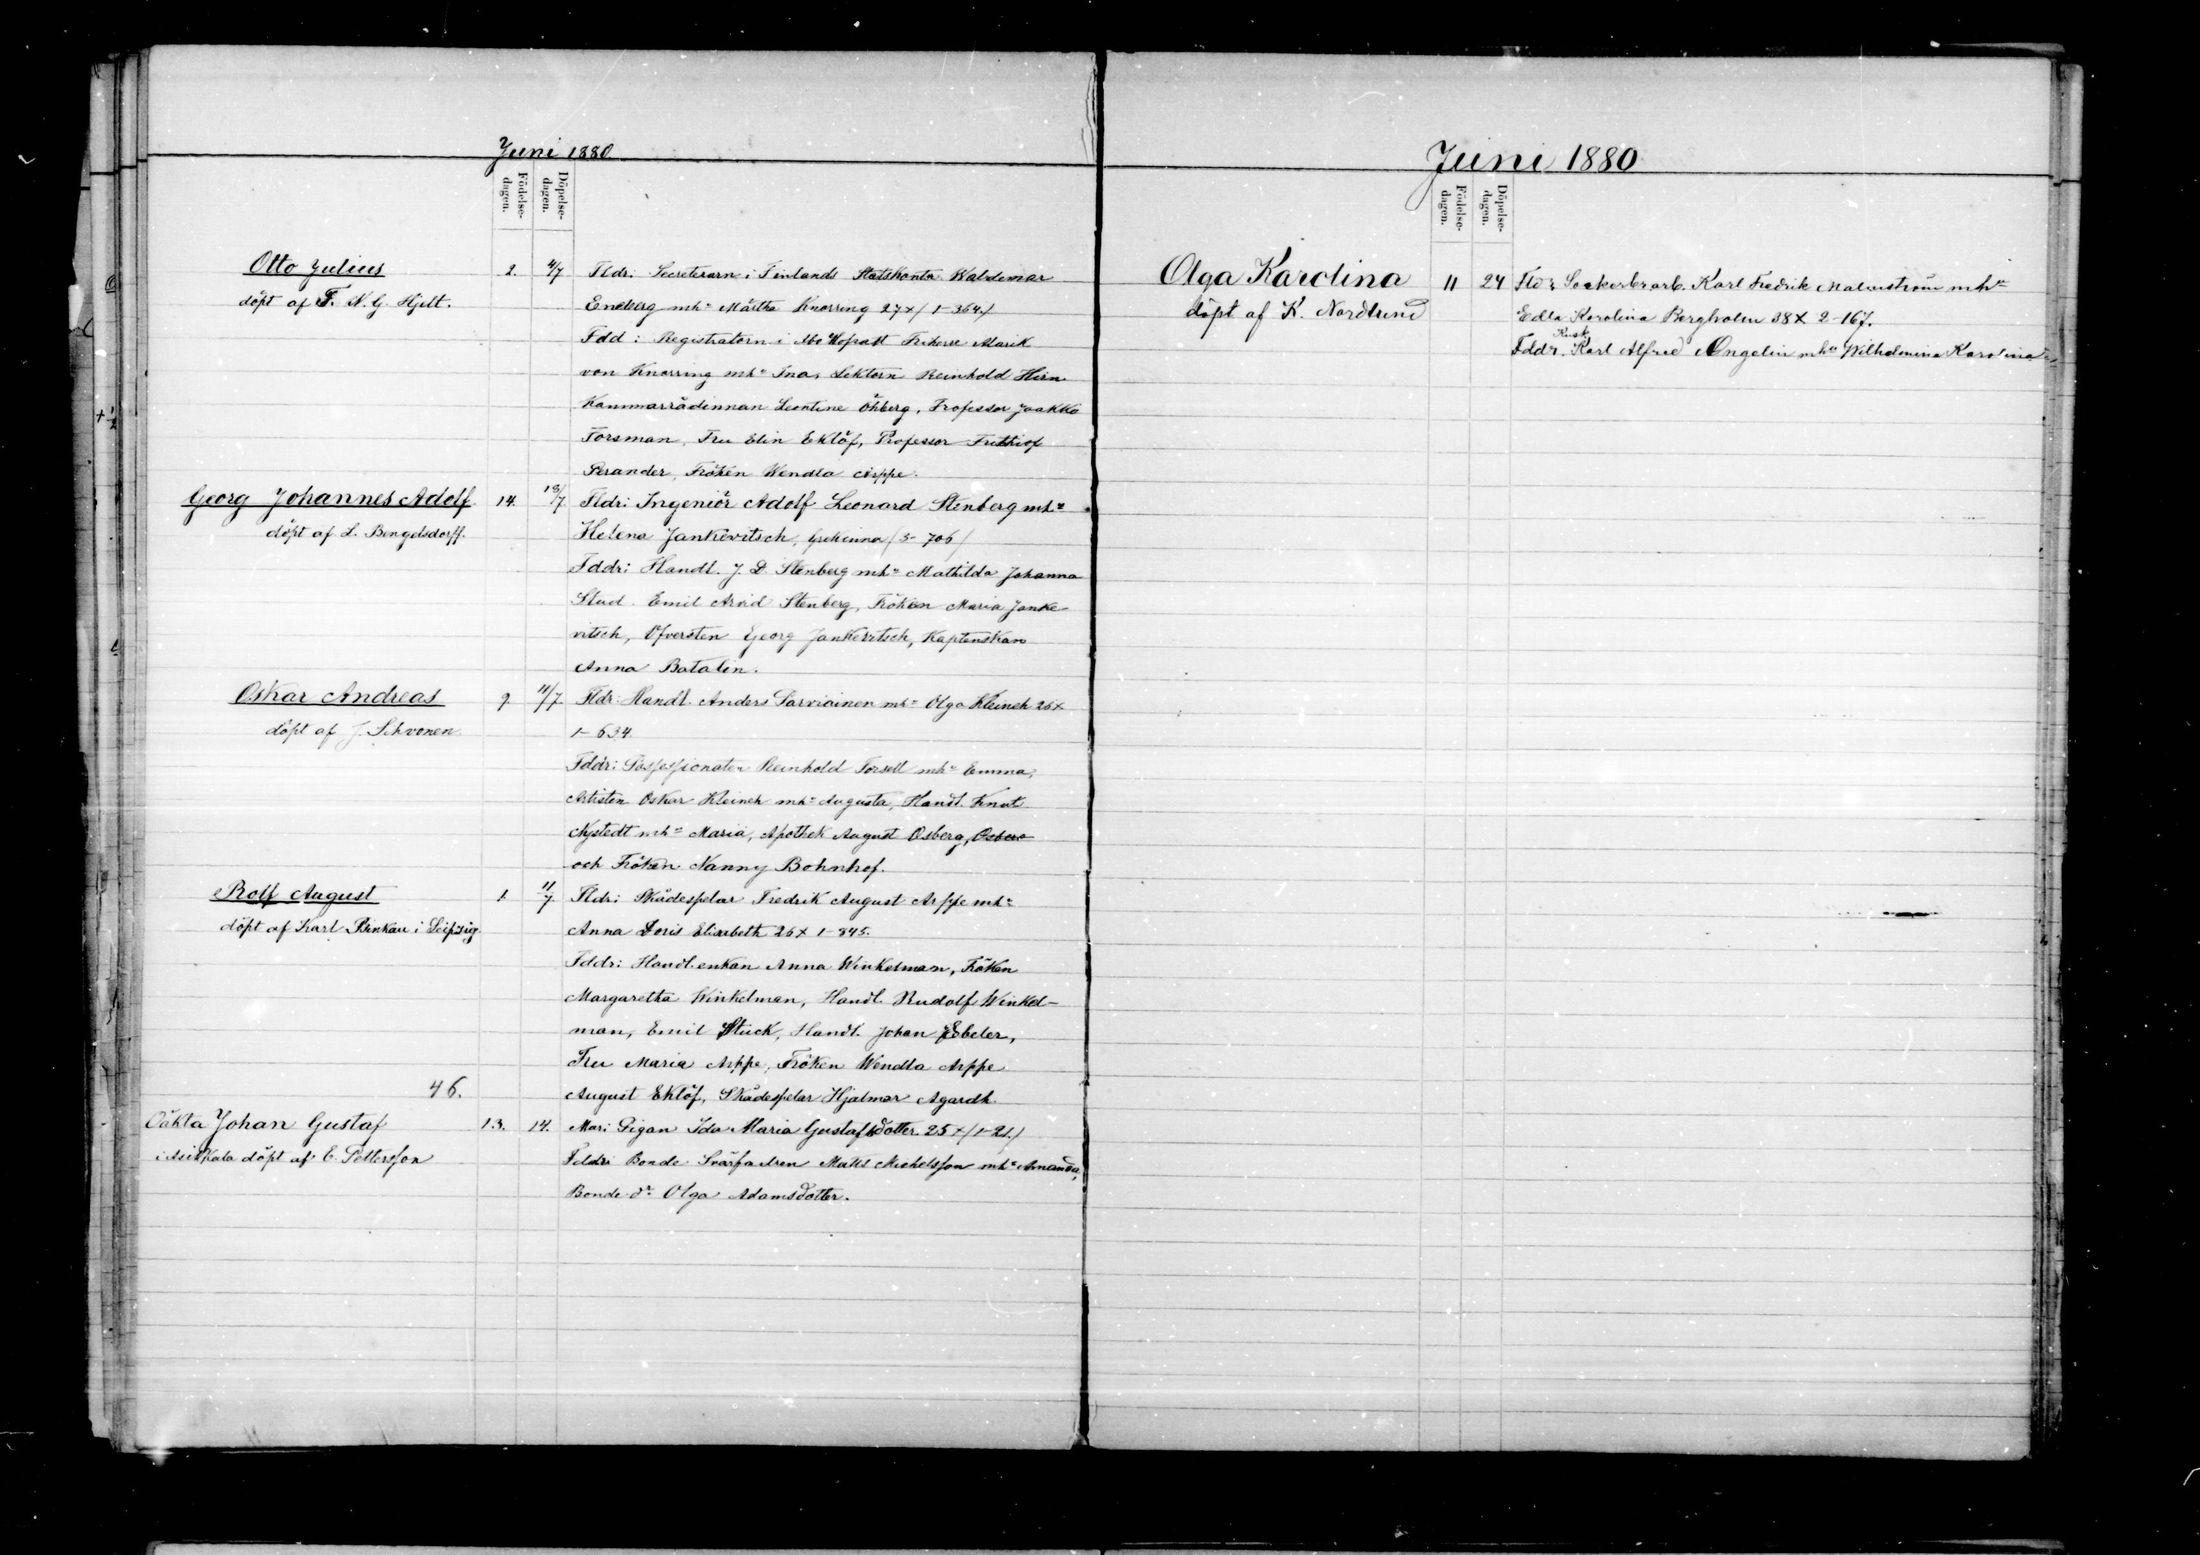 Juni 1880
Födelse-
dagen.
Döpelse-
dagen.
Otto Julius
döpt af F. N. G. Hjelt.
2. 4/7 Fldr: Secreterarn i Finlands Statskontor Waldemar
Eneberg mhu Märtha Knorring 27 x / 1-364./
Fdd: Registratorn i Åbo Hofrätt Friherre Marik
von Knorring mhu Ina, Lektorn Reinhold Hirn
Kammarrådinnan Leontine Öhberg, Professor Jaakko
Forsman, Fru Elin Eklöf, Professor Frithiof
Perander, Fröken Wendla Arppe.
Georg Johannes Adolf
döpt af L. Bengelsdorff.
14. 18/7 Fldr: Ingeniör Adolf Leonard Stenberg mhu
Helena Jankevitsch, Grekinna / 5-706 /
Fddr: Handl. J. D. Stenberg mhu Mathilda Johanna
Stud. Emil Arvid Stenberg, Fröken Maria Janke-
vitsch, Öfversten Georg Jankevitsch, Kaptenskan
Anna Batalin.
Oskar Andreas
döpt af J. Sihvonen
9. 11/7 Fldr: Handl. Anders Sarviainen mhu Olga Kleineh 26 x
1-634.
Fddr: Possessionaten Reinhold Forsell mhu Emma,
Artisten Oskar Kleineh mhu Augusta, Handl. Knut
Nystedt mhu Maria, Apothek August Osberg, Osberg
och Fröken Nanny Bohnhof.
Rolf August
döpt af Karl Binkau i Leipzig
1. 11/7 Fldr: Skådespelar Fredrik August Arppe mhu
Anna Doris Elisabeth 26 x 1-845.
Fddr: Handl.enkan Anna Winkelman, Fröken
Margaretha Winkelman, Handl. Rudolf Winkel-
man, Emil Stück, Handl. Johan Ebeler,
Fru Maria Arppe, Fröken Wendla Arppe
August Eklöf, Skådespelar Hjalmar Agardh.
46.
Oäkta Johan Gustaf
i Asikkala döpt af E. Pettersson
13. 14. Mor: Pigan Ida Maria Gustafsdotter 25 x / 1-21./
Fddr: Bonde Svärfadren Matts Michelsson mhu Amanda,
Bonde dr Olga Adamsdotter.
Juni 1880
Födelse-
dagen.
Döpelse-
dagen.
Olga Karolina
döpt af K. Nordlund
11 24 Fldr: Sockerbr.arb. Karl Fredrik Malmström mhu
Edla Karolina Bergholm 38 x 2-167.
Kusk
Fddr. Karl Alfred Angelin mhu Wilhelmina Karolina